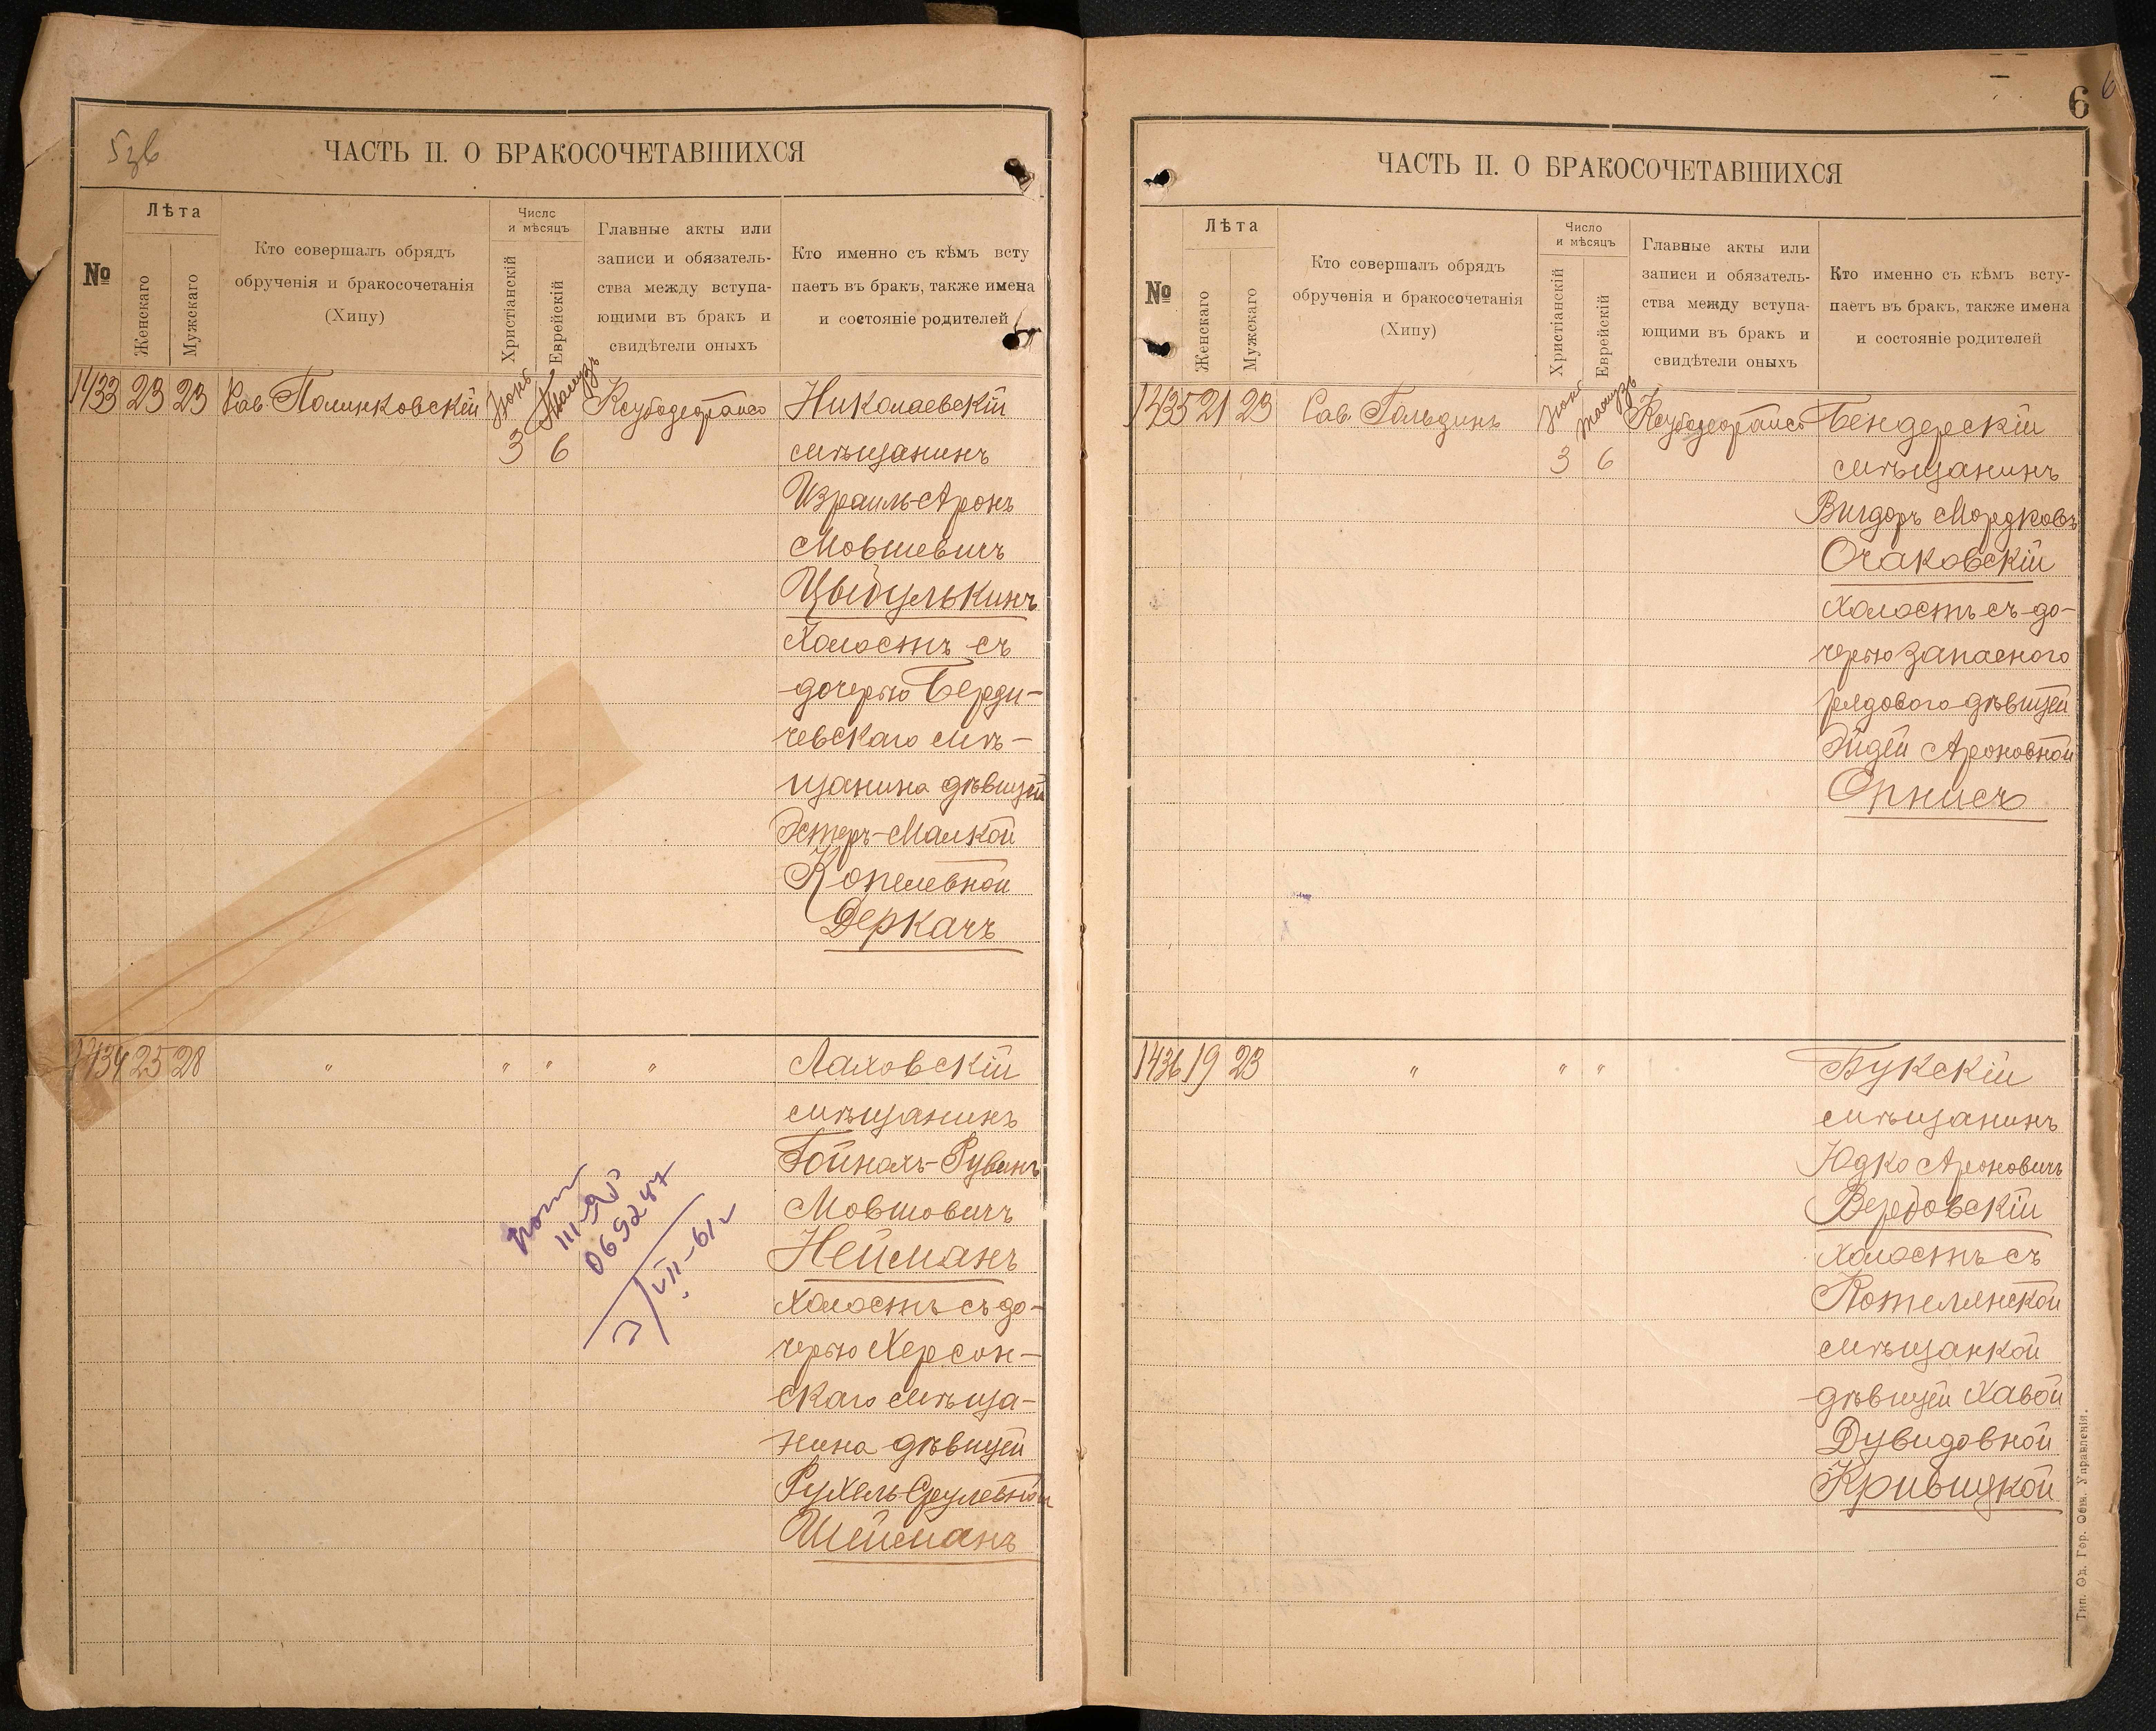 ЧАСТЬ II. О БРАКОСОЧЕТАВШИХСЯ
№
Лѣта
Женскаго
Мужскаго
Кто совершалъ обрядъ
обрученія и бракосочетанія
(Хипу)
Число
и мѣсяцъ
Христіанскій
Еврейскій
Главные акты или
записи и обязатель-
ства между вступа-
ющими въ бракъ и
свидѣтели оныхъ
Кто именно съ кѣмъ всту
паетъ въ бракъ, также имена
и состояніе родителей
1433 23 23 Рав. Полинковскій Іюня 3 Тамузъ 6
Николаевскій
мѣщанинъ
Израиль-Аронъ
Мовшевичъ
Цыбулькинъ
холостъ съ
дочерью Берди-
чевскаго мѣ-
щанина дѣвицей
Эстеръ-Малкой
Копелевной
Деркачъ
1434 25 28 " " " "
Лаховскій
мѣщанинъ
Гойнахъ-Рувинъ
Мовшовичъ
Нейманъ
холостъ съ до-
черью Херсон-
скаго мѣща-
нина дѣвицей
Рухель-Сруlевной
Шейманъ
III
069247
VII-61г
ЧАСТЬ II. О БРАКОСОЧЕТАВШИХСЯ
6
№
Лѣта
Женскаго
Мужскаго
Кто совершалъ обрядъ
обрученія и бракосочетанія
(Хипу)
Число
и мѣсяцъ
Христіанскій
Еврейскій
Главные акты или
записи и обязатель-
ства между вступа-
ющими въ бракъ и
свидѣтели оныхъ
Кто именно съ кѣмъ всту-
паетъ въ бракъ, также имена
и состояніе родителей
1435 21 23 Рав. Гольдинъ Іюня 3 Тамузъ 6
Бендерскій
мѣщанинъ
Вигдоръ Мордковъ
Очаковскій
холостъ съ до-
черью запасного
рядового дѣвицей
Эйдей Ароновной
Орнисъ
1436 19 23 " " "
Букскій
мѣщанинъ
Юдко Ароновичъ
Вербовскій
холостъ съ
Котелянской
мѣщанкой
дѣвицей Хавой
Дувидовной
Кривицкой
Тип. Од. Гор. Общ. Управленія.